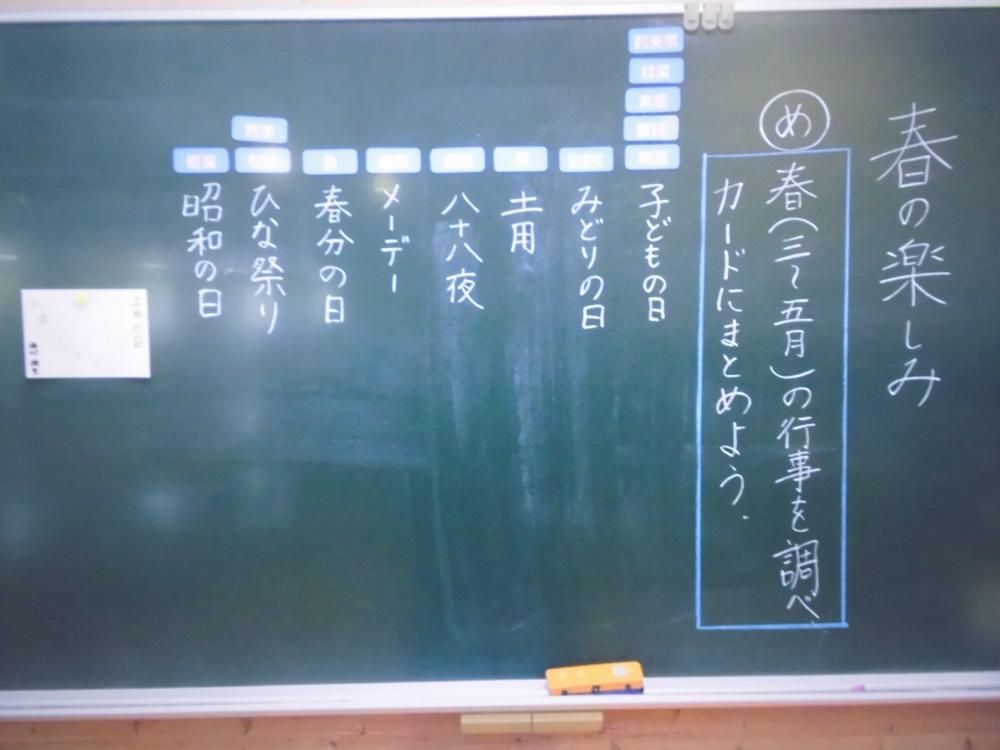 春の楽しみ
め
春(三〜五月)の行事を調べ、
カードにまとめよう.
子どもの日
みどりの日
土用
八十八夜
メーデー
春分の日
ひな祭り
昭和の日